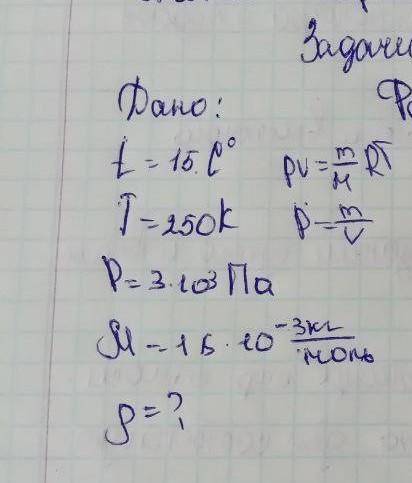 Задачи
Дано:
t = 15 C°
pV = m/M RT
T = 250K
ρ = m/V
P = 3·10³ Па
M = 16·10⁻³ кг/моль
ρ = ?